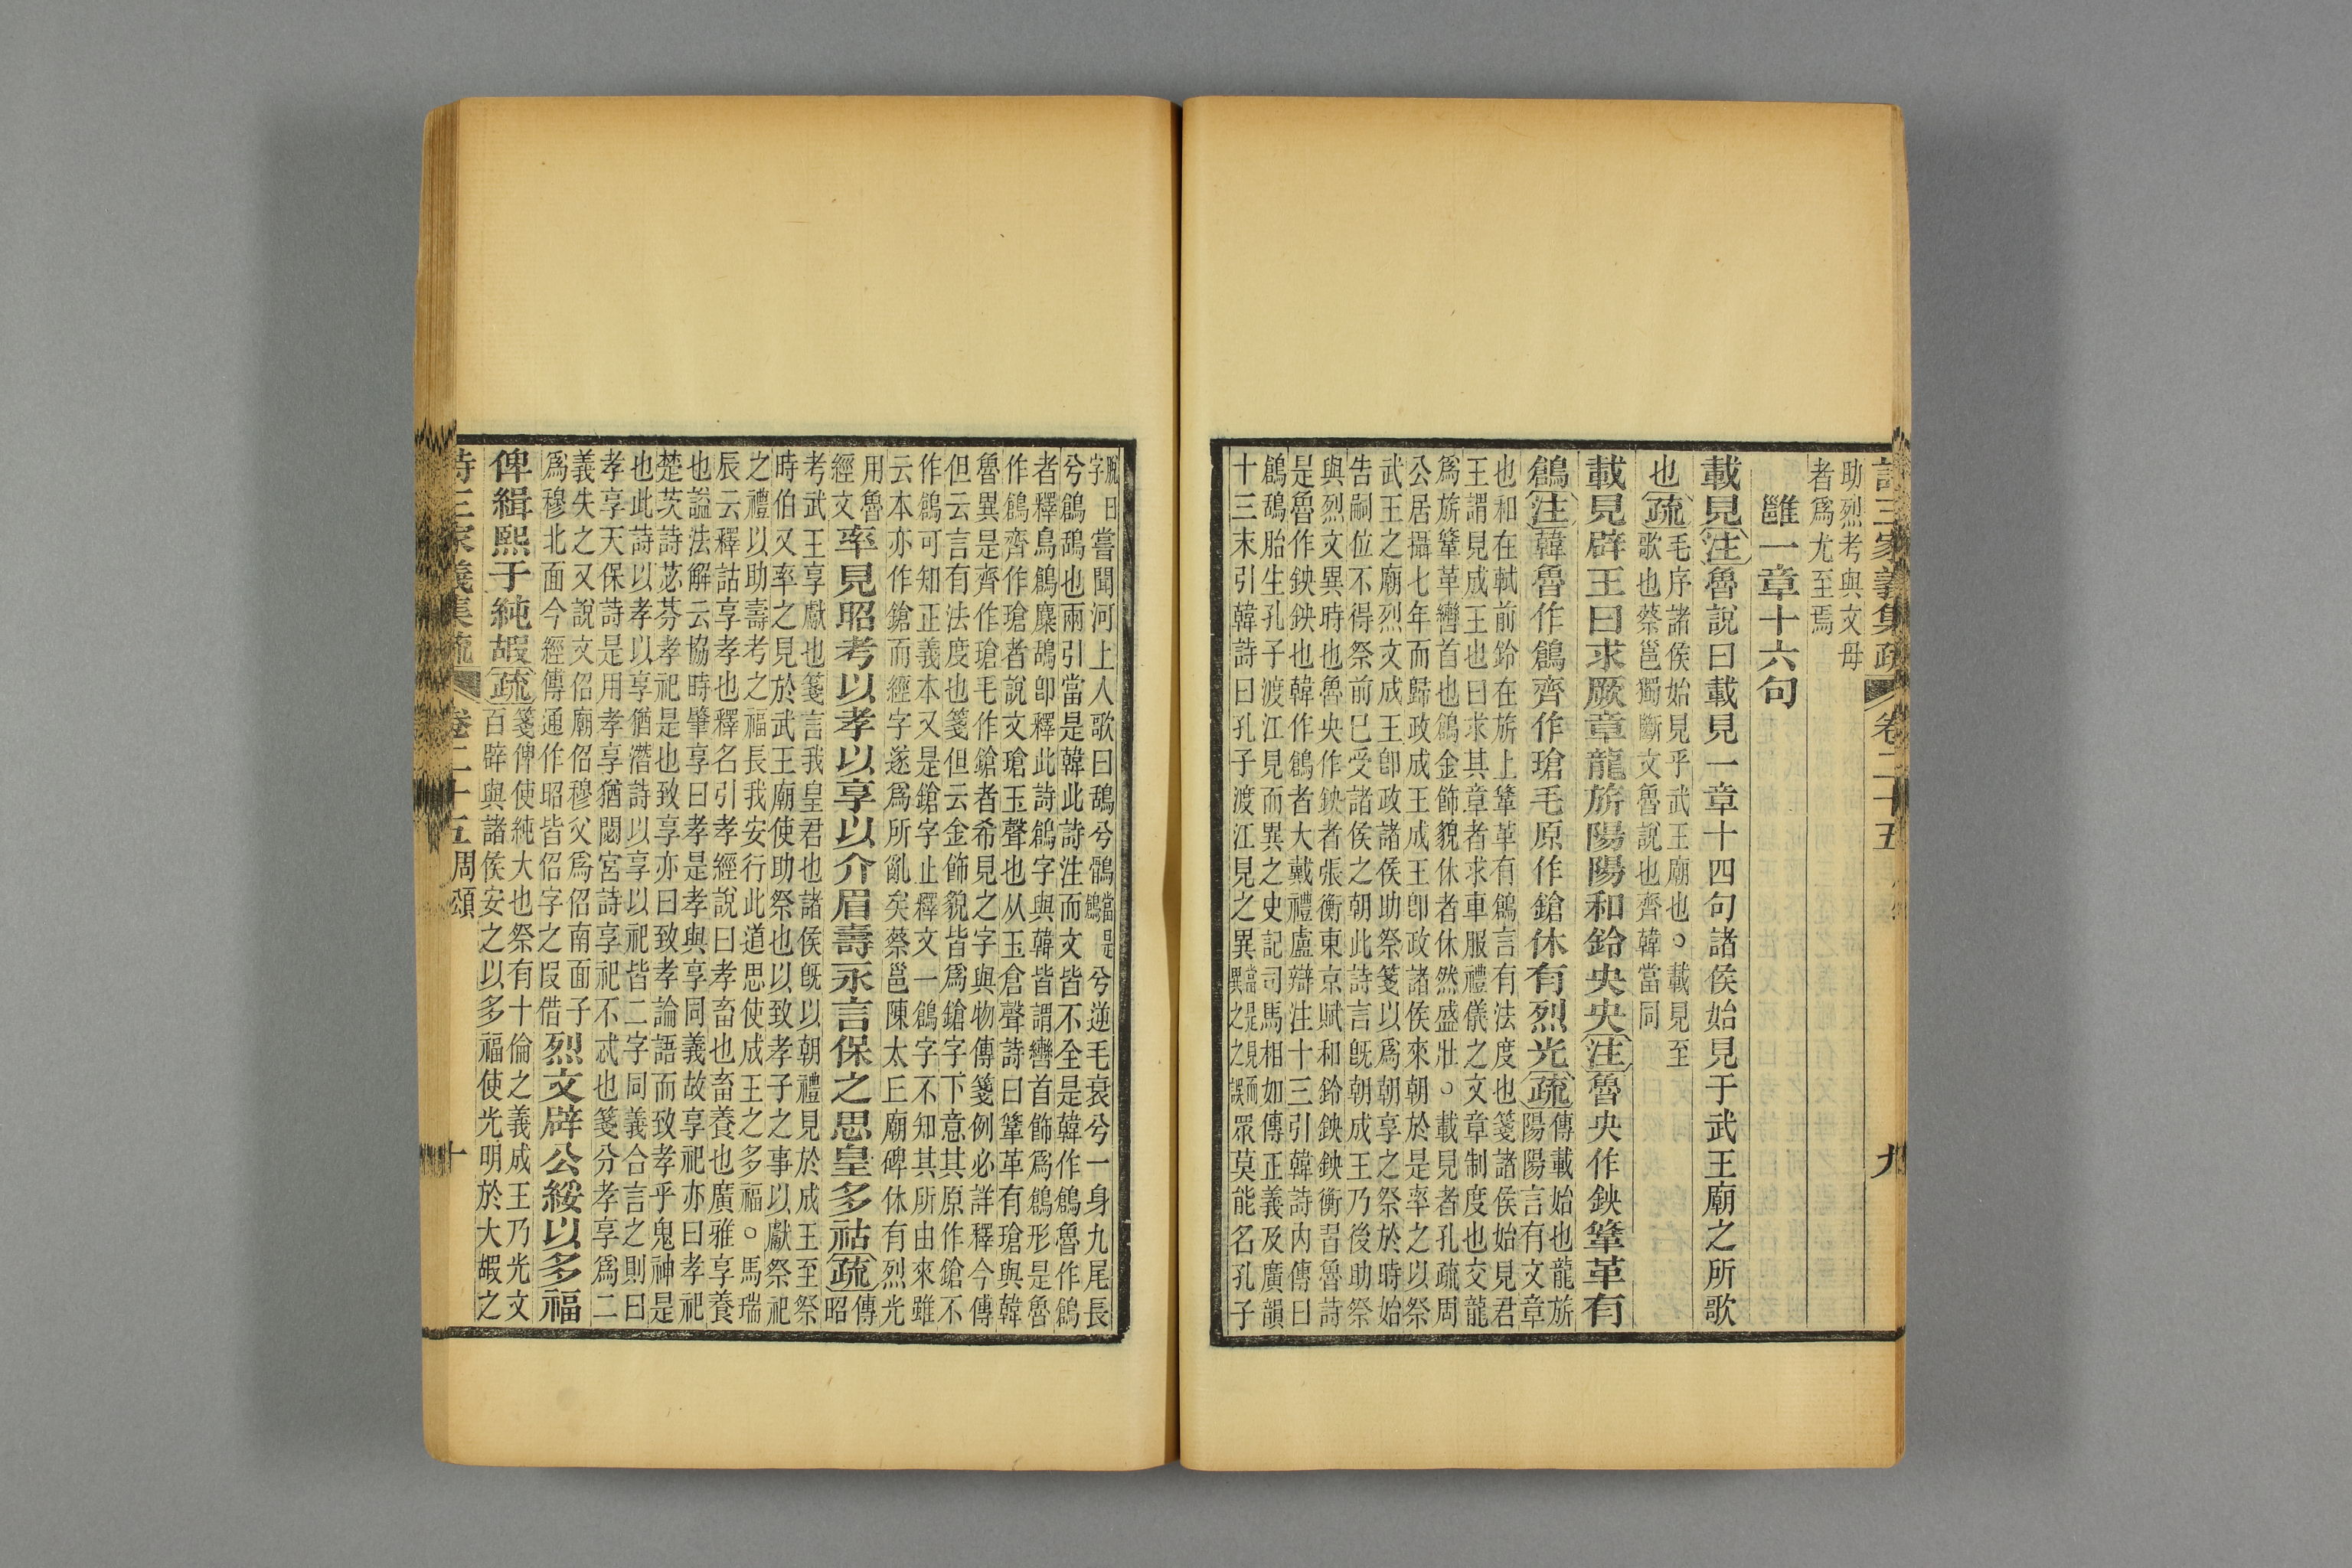 詩三家義集疏 卷二十五 九
助烈考與文母
者爲尤至焉
雝一章十六句
載見注魯說曰載見一章十四句諸侯始見于武王廟之所歌
也疏
毛序諸侯始見乎武王廟也○載見至
歌也蔡邕獨斷文魯說也齊韓當同
載見辟王曰求厥章龍旂陽陽和鈴央央注魯央作鉠鞗革有
鶬注韓魯作鶬齊作瑲毛原作鎗休有烈光疏
傳載始也龍旂
陽陽言有文章
也和在軾前鈴在旂上鞗革有鶬言有法度也箋諸侯始見君
王謂見成王也曰求其章者求車服禮儀之文章制度也交龍
爲旂鞗革轡首也鶬金飾貌休者休然盛壯○載見者孔疏周
公居攝七年而歸政成王成王卽政諸侯來朝於是率之以祭
武王之廟烈文成王卽政諸侯助祭箋以爲朝享之祭於時始
告嗣位不得祭前巳受諸侯之朝此詩言旣朝成王乃後助祭
與烈文異時也魯央作鉠者張衡東京賦和鈴鉠鉠衡習魯詩
是魯作鉠鉠也韓作鶬者大戴禮盧辯注十三引韓詩內傳曰
鶬鴰胎生孔子渡江見而異之史記司馬相如傳正義及廣韻
十三末引韓詩曰孔子渡江見之異
當是見而
異之之誤
眾莫能名孔子
脫日
字
嘗聞河上人歌曰鴰兮鶻
當是
鶬
兮逆毛衰兮一身九尾長
兮鶬鴰也兩引當是韓此詩注而文皆不全是韓作鶬魯作鶬
者釋鳥鶬麋鴰卽釋此詩鶬字與韓皆謂轡首飾爲鶬形是魯
作鶬齊作瑲者說文瑲玉聲也从玉倉聲詩曰鞗革有瑲與韓
魯異是齊作瑲毛作鎗者希見之字與物傳箋例必詳釋今傳
但云言有法度也箋但云金飾貌皆爲鎗字下意其原作鎗不
作鶬可知正義本又是鎗字止釋文一鶬字不知其所由來雖
云本亦作鎗而經字遂爲所亂矣蔡邕陳太丘廟碑休有烈光
用魯
經文
率見昭考以孝以享以介眉壽永言保之思皇多祜疏
傳
昭
考武王享獻也箋言我皇君也諸侯旣以朝禮見於成王至祭
時伯又率之見於武王廟使助祭也以致孝子之事以獻祭祀
之禮以助壽考之福長我安行此道思使成王之多福○馬瑞
辰云釋詁享孝也釋名引孝經說曰孝畜也畜養也廣雅享養
也謚法解云協時肇享曰孝是孝與享同義故享祀亦曰孝祀
楚茨詩苾芬孝祀是也致享亦曰致孝論語而致孝乎鬼神是
也此詩以孝以享猶潛詩以享以祀皆二字同義合言之則曰
孝享天保詩是用孝享猶閟宮詩享祀不忒也箋分孝享爲二
義失之又說文佋廟佋穆父爲佋南面子
爲穆北面今經傳通作昭皆佋字之叚借
烈文辟公綏以多福
俾緝熙于純嘏疏
箋俾使純大也祭有十倫之義成王乃光文
百辟與諸侯安之以多福使光明於大嘏之
詩三家義集疏 卷二十五 周頌 十